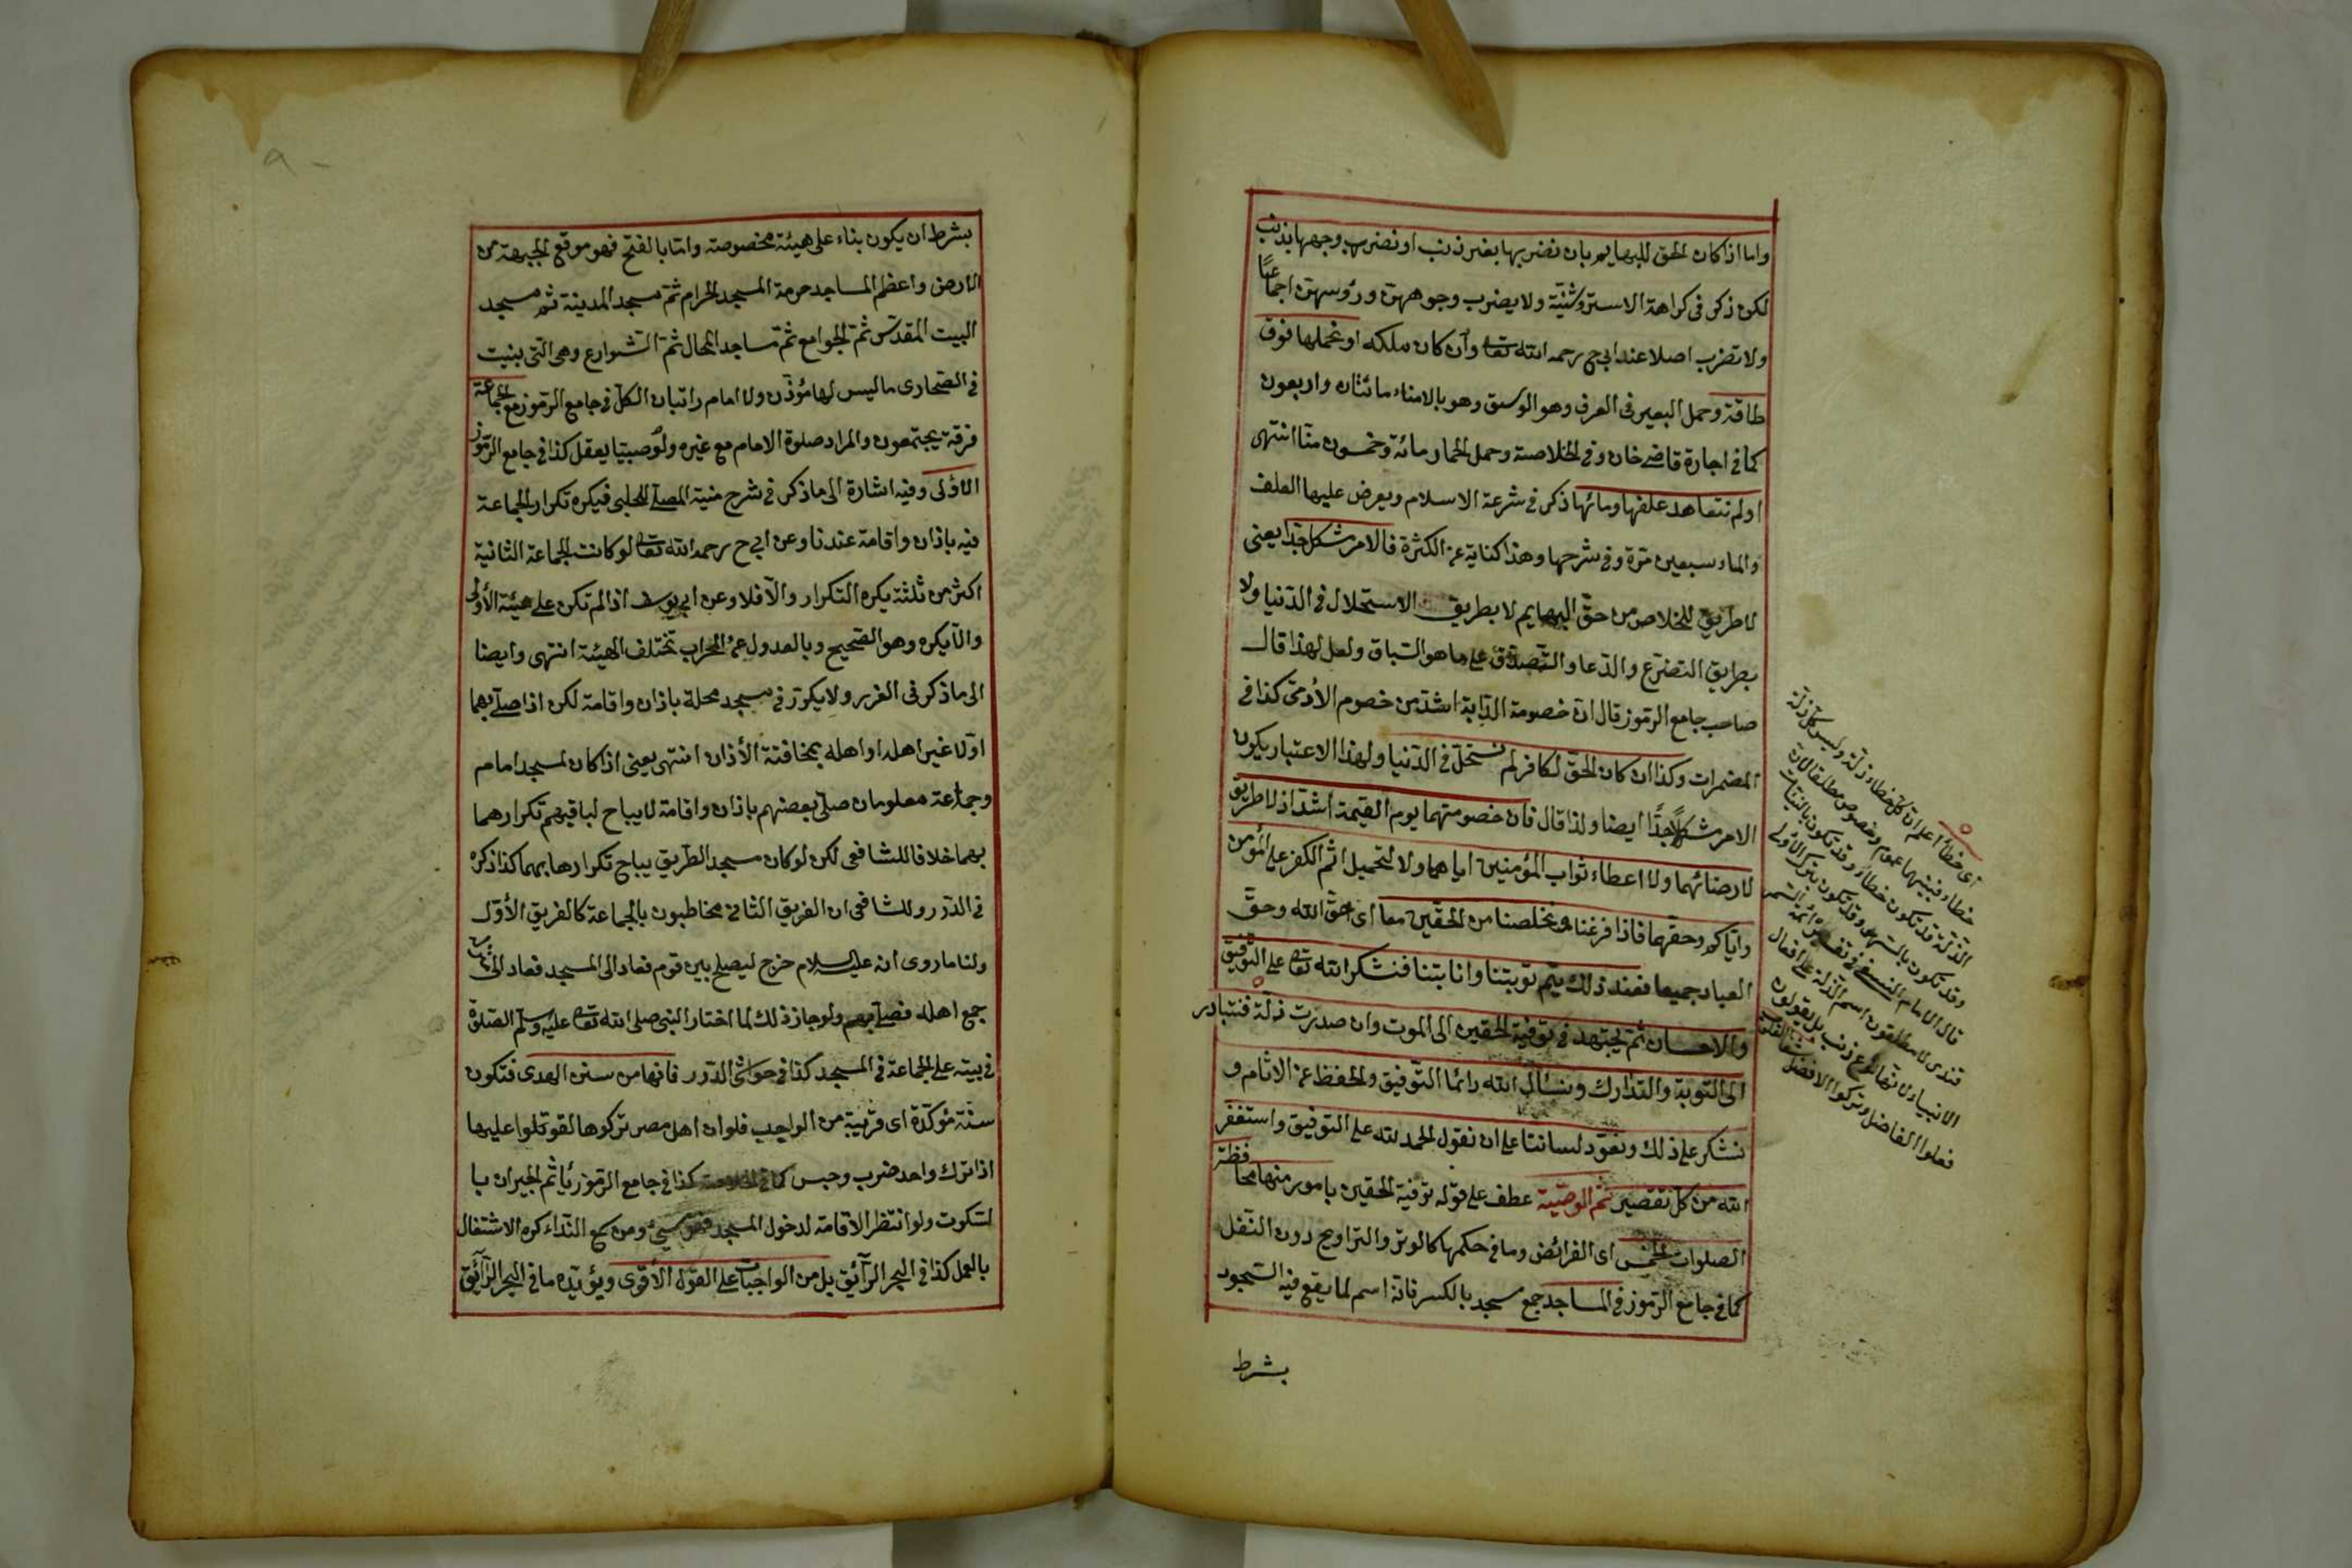 واما اذا كان الحق للبهايم بان نضربها بغير ذنب او نضرب وجهها بذنب
لكن ذكر فى كراهة الاستروشنية ولا يضرب وجوههن ورؤسهن اجماعًا
ولا تضرب اصلا عند ابى ح رحمه الله تعا وان كان ملكه او نحملها فوق
طاقة وحمل البعير فى العرف وهو الوسق وهو بالامناء مائتان واربعون
كما فى اجارة قاضى خان وفى الخلاصة وحمل الحمار مائة وخمسون منّا انتهى
او لم نتعاهد علفها ومائها ذكر فى شرعة الاسلام ويعرض عليها العلف
والماء سبعين مرّة وفى شرحها وهذا كناية عن الكثرة فالامر مشكل جدّا يعنى
لا طريق للخلاص من حقّ البهايم لا بطريق الاستحلال فى الدّنيا ولا
بطريق التضرّع والدّعا والتّصدّق على ما هو السّباق ولعل لهذا قال
صاحب جامع الرّموز قال انّ خصومة الدّابة اشدّ من خصوم الآدمى كذا فى
المضمرات وكذا ان كان الحقّ لكافر لم نستحلّ فى الدّنيا ولهذا الاعتبار يكون
الامر مشكلًا جدًّا ايضا ولذا قال فان خصومتهما يوم القيمة اشدّ اذ لا طريق
لارضائهما ولا اعطاء ثواب المؤمنين اياهما ولا لتحميل اثم الكفر على المؤمن
واياكم وحقهما فاذا فرغنا وتخلصنا من الحقّين معا اى حقّ الله وحقّ
العباد جميعا فعند ذلك يتمّ توبتنا وانابتنا فنشكر الله تعا على التّوفيق
والاحسان ثم يجتهد فى توفية الحقين الى الموت وان صدرت زلّة فنتبادر
الى التوبة والتدارك ونسأل الله دائما التّوفيق والحفظ عن الاثام و
نشكر على ذلك ونعوّد لساننا على ان نقول الحمد لله على التوفيق واستغفر
الله من كلّ تقصير ثم الوصيّة عطف على قوله توفية الحقين بامور منها محافظة
الصلوات الخمس اى الفرائض وما فى حكمها كالوتر والتراويح دون النّفل
كما فى جامع الرّموز فى المساجد جمع مسجد بالكسر فانّه اسم لما يقع فيه السّجود
بشرط
اى خطأ اعلم ان كلّ خطاء زلّة وليس كلّ زلّة
خطاء فبينهما عموم وخصوص مطلقا لانّ
الزلّة قد تكون خطاء وقد تكون بالنّيات
وقد تكون بالسّهو وقد تكون بترك الاولى
قال الامام النسفى فى تفسيره ائمّة السّمر
قندى لا يطلقون اسم الزّلة على افعال
الانبياء لانها نوع ذنب بل يقولون
فعلوا الفاضل وتركوا الافضل
بشرط ان يكون بناء على هيئة مخصوصة وامّا بالفتح فهو موقع الجبهة من
الارض واعظم المساجد حرمة المسجد الحرام ثمّ مسجد المدينة ثم مسجد
البيت المقدّس ثمّ الجوامع ثمّ مساجد المحال ثمّ الشوارع وهى التّى بنيت
فى الصّحارى ما ليس لها مؤذّن ولا امام راتبان الكلّ فى جامع الرّموز مع الجماعة
فرقة يجتمعون والمراد صلوة الامام مع غيره ولو صبيّا يعقل كذا فى جامع الرّموز
الاولى وفيه اشارة الى ما ذكر فى شرح منية المصلّى للحلبى فيكره تكرار الجماعة
فيه باذان واقامة عندنا وعن ابى ح رحمه الله تعا لو كانت الجماعة الثانية
اكثر من ثلثة يكره التكرار والّا فلا وعن ابى يوسف اذا لم تكن على هيئة الأولى
والّا يكره وهو الصّحيح وبالعدول عن المحراب تختلف الهيئة انتهى وايضا
الى ما ذكر فى الغرر ولا يكرّر فى مسجد محلة باذان واقامة لكن اذا صلّى بهما
اوّلا غير اهله او اهله بمخافتة الأذان انتهى يعنى اذا كان لمسجد امام
وجماعة معلومان صلّى بعضهم باذان واقامة لا يباح لباقيهم تكرارهما
بهما خلافا للشافعى لكن لو كان مسجد الطّريق يباح تكرارها بهما كذا ذكره
فى الدّرر وللشافعى ان الفريق الثانى مخاطبون بالجماعة كالفريق الأوّل
ولنا ما روى انه عليه السلام خرج ليصلح بين قوم فعاد الى المسجد فعاد الى
جمع اهله فصلّى بهم ولو جاز ذلك لما اختار النبى صلى الله تعا عليه وسلم الصّلوة
فى بيته على الجماعة فى المسجد كذا فى حواشى الدّرر فانها من سنن الهدى فتكون
سنّة مؤكدّة اى قريبة من الواجب فلو ان اهل مصر تركوها لقوتلوا عليها
اذا ترك واحد ضرب وحبس كما فى الخلاصة كذا فى جامع الرّموز ياثم الجيران با
لسّكوت ولو انتظر الاقامة لدخول المسجد فهو سيئ ومن سمع النّداء كره الاشتغال
بالعمل كذا فى البحر الرّائق بل من الواجبات على القول الأقوى ويؤيّده ما فى البحر الرّائق